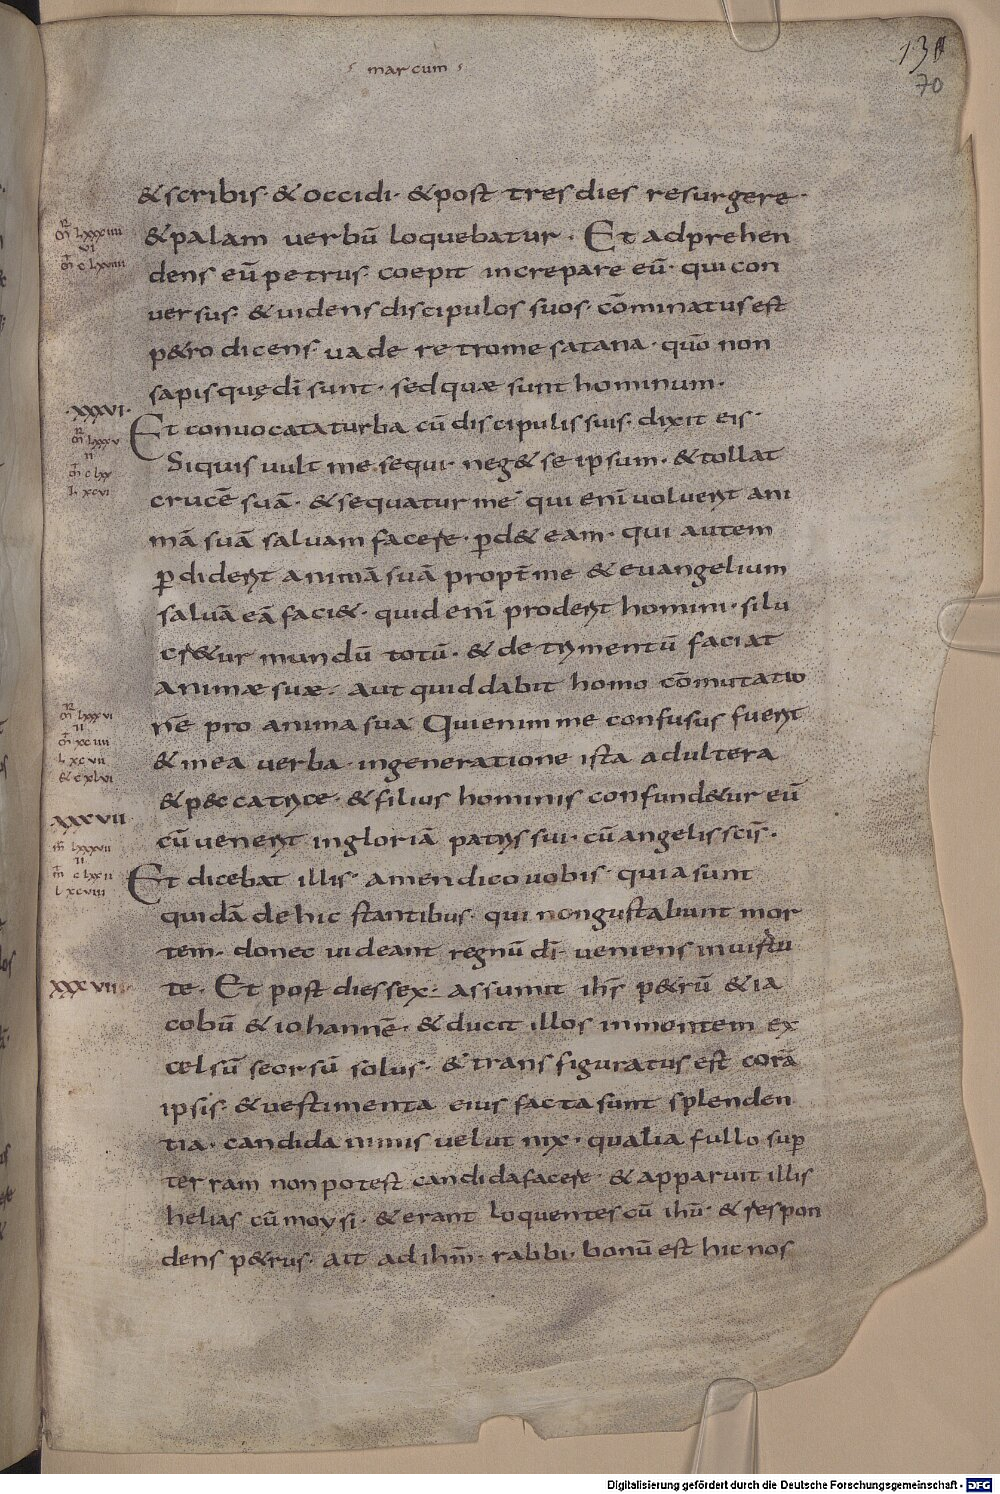 marcum
130
70
& scribis · & occidi · & post tres dies resurgere ·
& palam verbū loquebatur · Et adprehen
dens eū petrus · coepit increpare eū · qui con
versus · & videns discipulos suos · cōminatus est
p&ro dicens · vade retro me satana · qūo non
sapis quę dī sunt · sed quæ sunt hominum ·
·XXXVI·
Et convocata turba cū discipulis suis · dixit eis ·
Siquis vult me sequi · neg& se ipsum · & tollat
crucē suā · & sequatur me · qui enī voluerit ani
mā suā salvam facere · p̱d& eam · qui autem
p̱diderit animā suā propt̄ me & evangelium
salvā eā faci& · quid enī proderit homini · si lu
cr&ur mundū totū · & detrimentū faciat
animæ suæ · Aut quid dabit homo cōmutatio
nē pro anima sua · Qui enim me confusus fuerit
& mea verba · in generatione ista adultera
& peccatrice · & filius hominis confund&ur eū
XXXVII
cū venerit in gloriā patris sui · cū angelis scīs ·
Et dicebat illis · amen dico vobis · quia sunt
quidā de hic stantibus · qui non gustabunt mor
tem · donec videant regnū dī · veniens in virtu
XXXVII
te · Et post dies sex · assumit ihs̄ p&rū & ia
cobū & iohannē · & ducit illos in montem ex
celsū seorsū solus · & transfiguratus est corā
ipsis · & vestimenta eius facta sunt splenden
tia · candida nimis velut nix · qualia fullo sup̱
terram non potest candida facere · & apparuit illis
helias cū moysi · & erant loquentes cū ihū · & respon
dens p&rus · ait ad ihm̄ · rabbi · bonū est hic nos
Digitalisierung gefördert durch die Deutsche Forschungsgemeinschaft - DFG